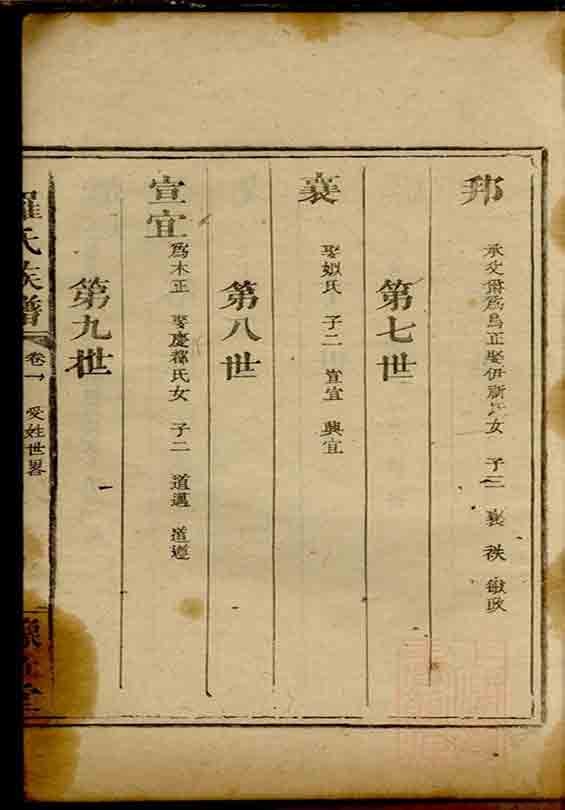 邦 承父爵為鳥正娶伊祈氏女 子三 襄 秩 敏政
第七世
襄 娶姒氏 子二 宣宜 興宜
第八世
宣宜 為木正 娶慶都氏女 子二 道邁 道遵
第九世
羅氏族譜 卷一 受姓世畧